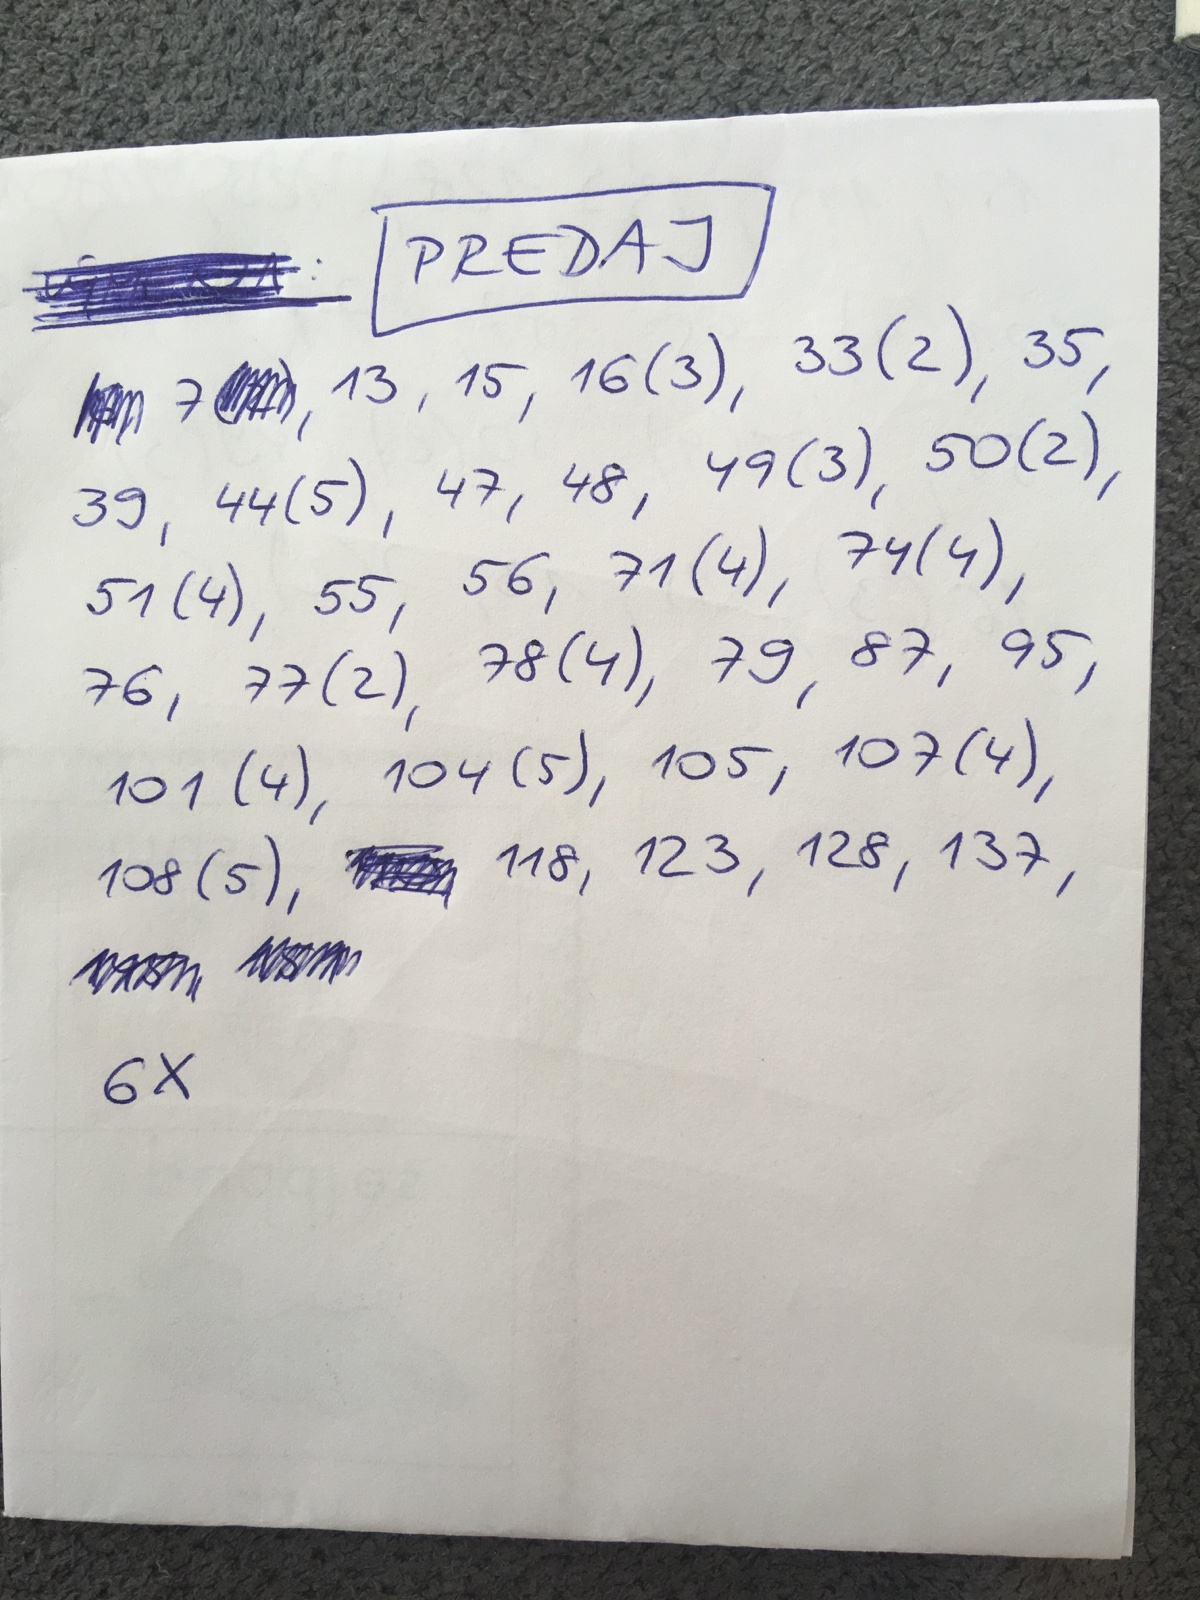 PREDAJ
7, 13, 15, 16(3), 33(2), 35,
39, 44(5), 47, 48, 49(3), 50(2),
51(4), 55, 56, 71(4), 74(4),
76, 77(2), 78(4), 79, 87, 95,
101(4), 104(5), 105, 107(4),
108(5), 118, 123, 128, 137,
6X